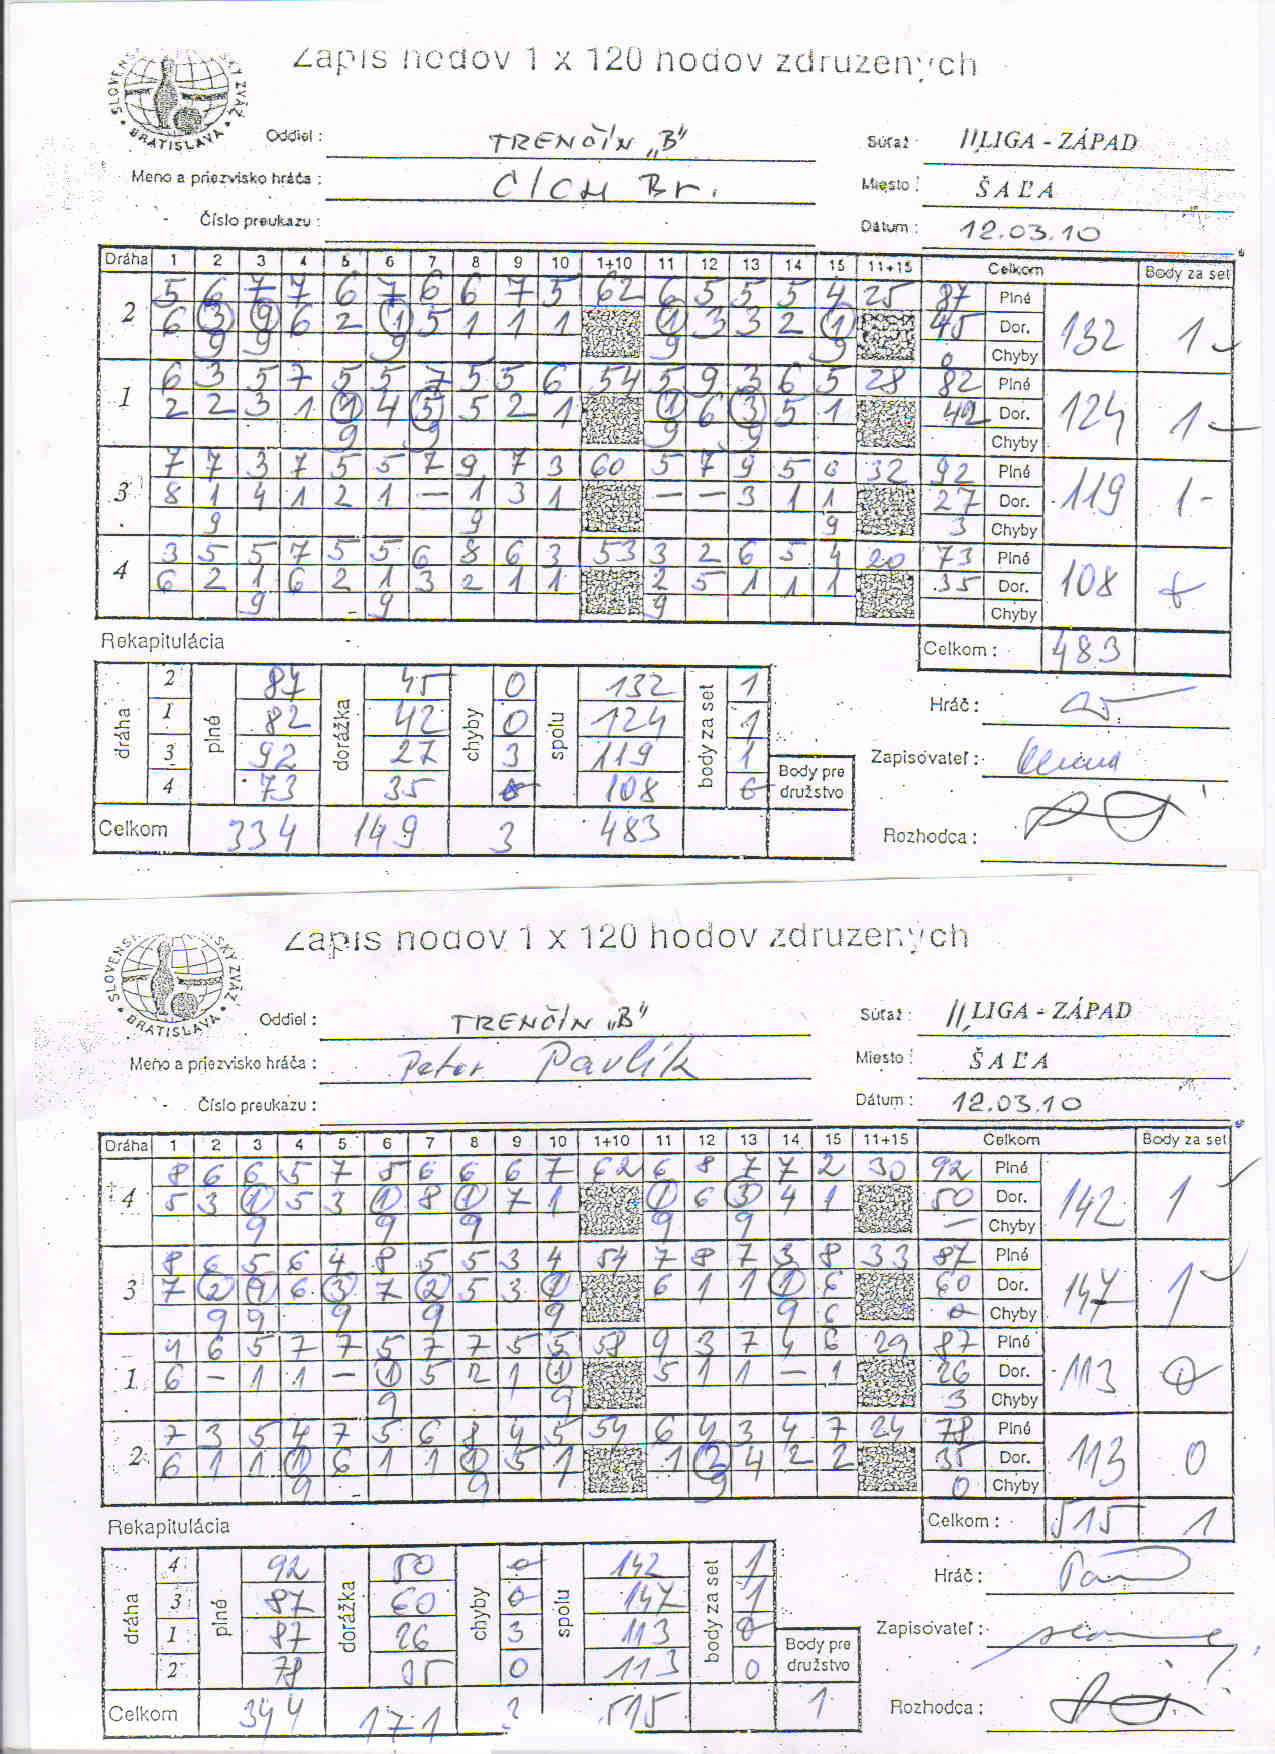 SLOVENSKÝ ZVÄZ
BRATISLAVA
Zápis hodov 1 x 120 hodov združených
Oddiel : TRENČÍN „B" Súťaž : II LIGA - ZÁPAD
Meno a priezvisko hráča : CÍCH Br. Miesto : ŠAĽA
Číslo preukazu : Dátum : 12.03.10
Dráha 1 2 3 4 5 6 7 8 9 10 1+10 11 12 13 14 15 11+15 Celkom Body za set
2 5 6 7 7 6 7 6 6 7 5 62 6 5 5 5 4 25 87 Plné 132 1
6 3 9 6 2 1 5 1 1 1 1 3 3 2 1 45 Dor.
9 9 9 9 9 0 Chyby
1 6 3 5 7 5 5 7 5 5 6 54 5 9 3 6 5 28 82 Plné 124 1
2 2 3 1 1 4 5 5 2 1 1 6 3 5 1 42 Dor.
9 9 9 9 Chyby
3 7 7 3 7 5 5 7 9 7 3 60 5 7 9 5 6 32 92 Plné 119 1
8 1 4 1 2 1 – 1 3 1 – – 3 1 1 27 Dor.
9 9 9 3 Chyby
4 3 5 5 7 5 5 6 8 6 3 53 3 2 6 5 4 20 73 Plné 108
6 2 1 6 2 1 3 2 1 1 2 5 1 1 1 35 Dor.
9 9 9 Chyby
Rekapitulácia Celkom : 483
dráha 2 plné 87 dorážka 45 chyby 0 spolu 132 body za set 1
1 82 42 0 124 1
3 92 27 3 119 1
4 73 35 0 108 0
Celkom 334 149 3 483
Body pre družstvo
Hráč :
Zapisovateľ :
Rozhodca :
SLOVENSKÝ ZVÄZ
BRATISLAVA
Zápis hodov 1 x 120 hodov združených
Oddiel : TRENČÍN „B" Súťaž : II LIGA - ZÁPAD
Meno a priezvisko hráča : Peter Pavlík Miesto : ŠAĽA
Číslo preukazu : Dátum : 12.03.10
Dráha 1 2 3 4 5 6 7 8 9 10 1+10 11 12 13 14 15 11+15 Celkom Body za set
4 8 6 6 5 7 5 6 6 6 7 62 6 8 7 7 2 30 92 Plné 142 1
5 3 1 5 3 1 8 1 7 1 1 6 3 4 1 50 Dor.
9 9 9 9 9 – Chyby
3 8 6 5 6 4 8 5 5 3 4 54 7 8 7 3 8 33 87 Plné 147 1
7 2 7 6 3 7 2 5 3 1 6 1 1 1 6 60 Dor.
9 9 9 9 9 9 6 0 Chyby
1 4 6 5 7 7 5 7 7 5 5 58 9 3 7 4 6 29 87 Plné 113 0
6 – 1 1 – 1 5 2 1 1 5 1 1 – 1 26 Dor.
9 9 3 Chyby
2 7 3 5 4 7 5 6 8 4 5 54 6 4 3 4 7 24 78 Plné 113 0
6 1 1 1 6 1 1 1 5 1 1 2 4 2 2 35 Dor.
9 9 9 0 Chyby
Rekapitulácia Celkom : 515 1
dráha 4 plné 92 dorážka 50 chyby 0 spolu 142 body za set 1
3 87 60 0 147 1
1 87 26 3 113 0
2 78 35 0 113 0
Celkom 344 171 3 515
Body pre družstvo 1
Hráč :
Zapisovateľ :
Rozhodca :